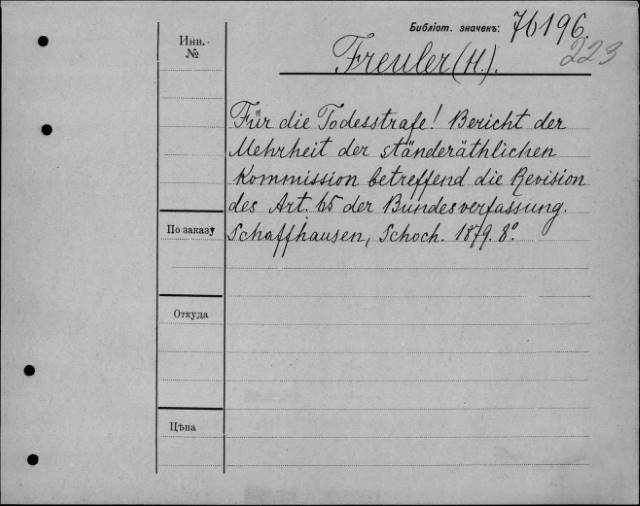 Библіот. значекъ: 76196.
223
Инв. №
Freuler (H.).
Für die Todesstrafe! Bericht der
Mehrheit der ständeräthlichen
Kommission betreffend die Revision
des Art. 65 der Bundesverfassung.
По заказу
Schaffhausen, Schoch. 1879. 8°.
Откуда
Цѣна